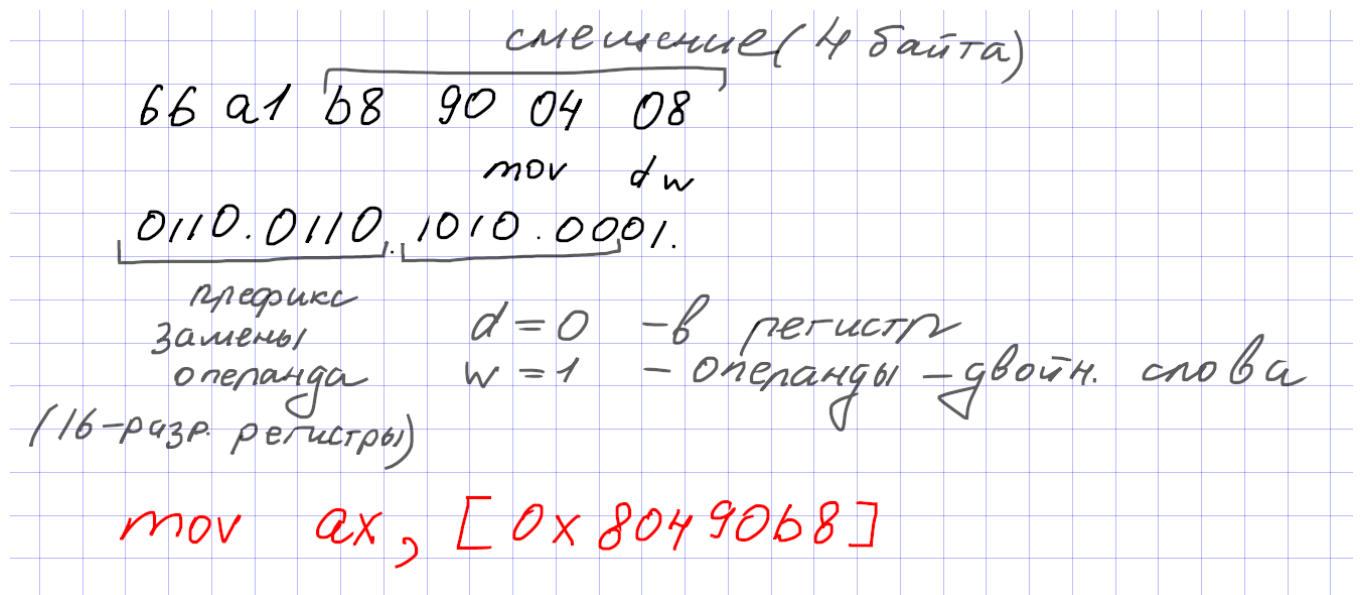 смещение (4 байта)
66 a1 b8 90 04 08
mov d w
0110.0110.1010.0001.
префикс
замены
операнда
(16-разр. регистры)
d = 0 - в регистр
w = 1 - операнды - двойн. слова
mov ax, [0x80490b8]